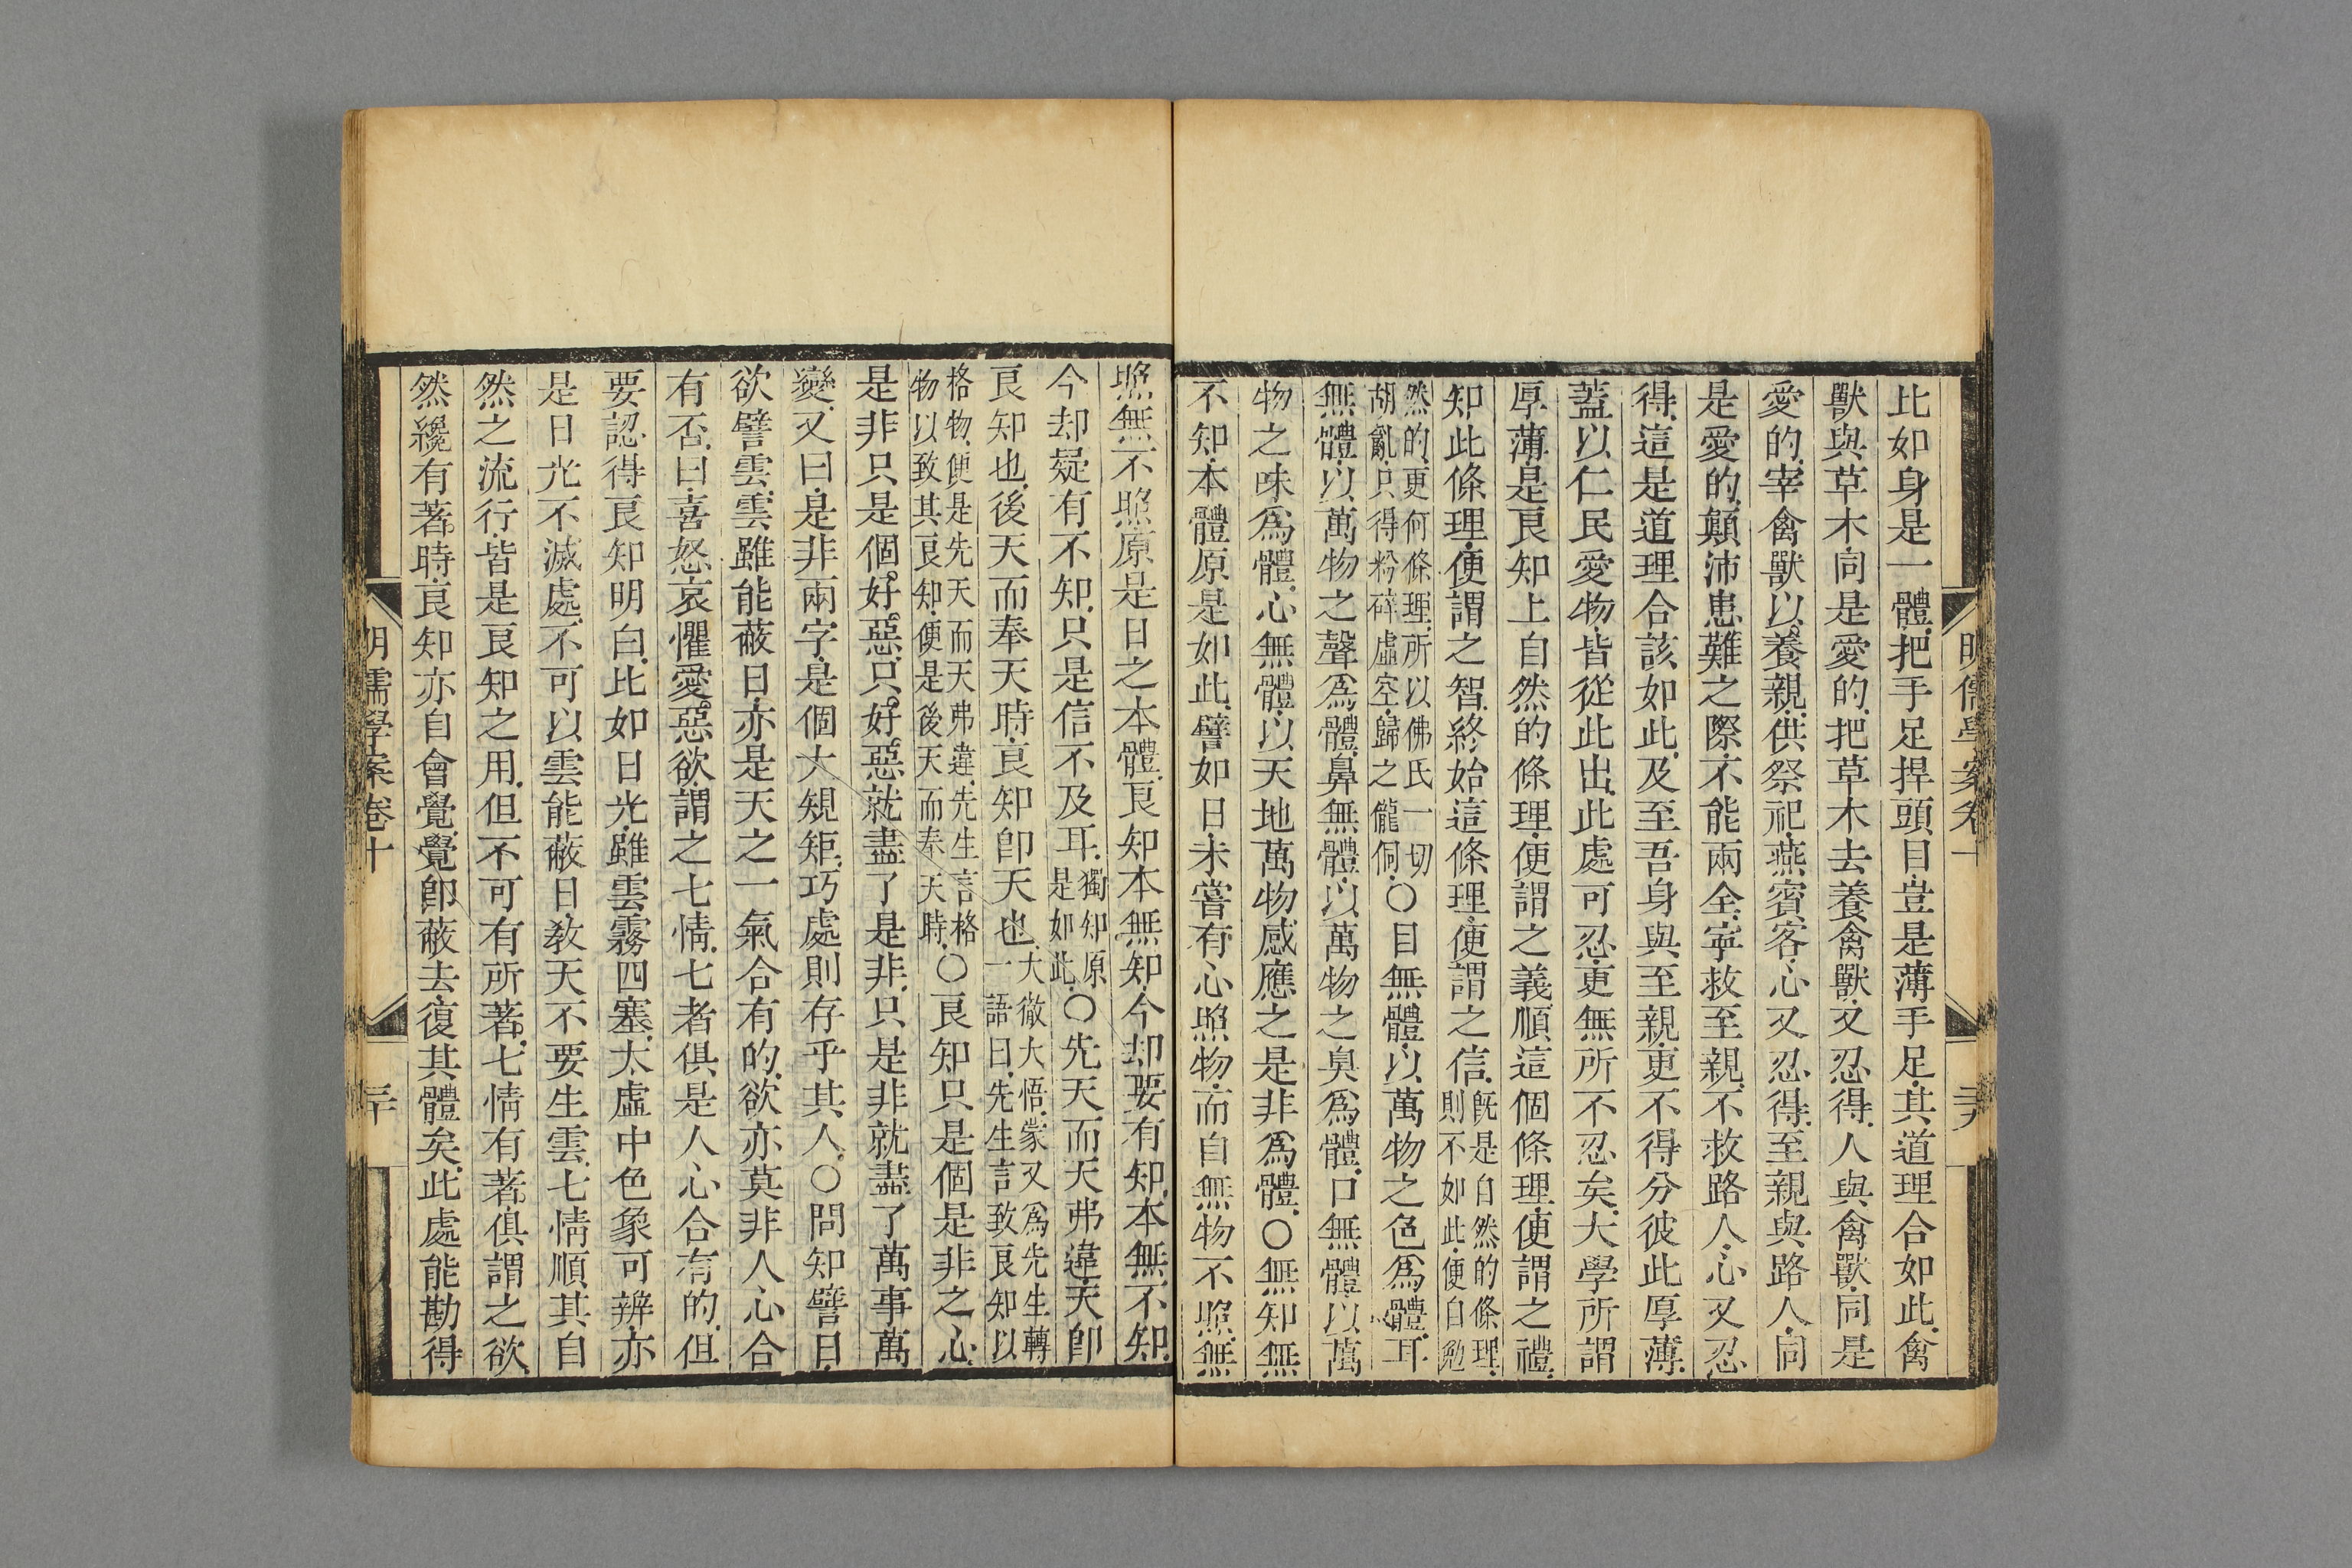 明儒學案卷十
比如身是一體.把手足捍頭目.豈是薄手足.其道理合如此.禽
獸與草木.同是愛的.把草木去養禽獸.又忍得.人與禽獸.同是
愛的.宰禽獸以養親.供祭祀.燕賓客.心又忍得.至親與路人.同
是愛的.顛沛患難之際.不能兩全.寧救至親.不救路人.心又忍
得.這是道理合該如此.及至吾身與至親.更不得分彼此厚薄.
蓋以仁民愛物.皆從此出.此處可忍.更無所不忍矣.大學所謂
厚薄.是良知上自然的條理.便謂之義.順這個條理.便謂之禮.
知此條理.便謂之智.終始這條理.便謂之信.既是自然的條理.則不如此.便自勉
然的.更何條理.所以佛氏一切胡亂.只得粉碎虛空.歸之儱侗.○目無體.以萬物之色爲體.耳
無體.以萬物之聲爲體.鼻無體.以萬物之臭爲體.口無體.以萬
物之味爲體.心無體.以天地萬物感應之是非爲體.○無知無
不知.本體原是如此.譬如日未嘗有心照物.而自無物不照.無
照無不照.原是日之本體.良知本無知.今却要有知.本無不知.
今却疑有不知.只是信不及耳.獨知原是如此.○先天而天弗違.天卽
良知也.後天而奉天時.良知卽天也.大徹大悟.蒙又爲先生轉一語曰.先生言致良知以
格物.便是先天而天弗違.先生言格物以致其良知.便是後天而奉天時.○良知只是個是非之心.
是非只是個好惡.只好惡就盡了是非.只是非就盡了萬事萬
變.又曰.是非兩字.是個大規矩.巧處則存乎其人.○問.知譬日.
欲譬雲.雲雖能蔽日.亦是天之一氣合有的.欲亦莫非人心合
有否.曰.喜怒哀懼愛惡欲.謂之七情.七者俱是人心合有的.但
要認得良知明白.比如日光.雖雲霧四塞.太虛中色象可辨.亦
是日光不滅處.不可以雲能蔽日.教天不要生雲.七情順其自
然之流行.皆是良知之用.但不可有所著.七情有著.俱謂之欲.
然纔有著時.良知亦自會覺.覺卽蔽去.復其體矣.此處能勘得
明儒學案卷十